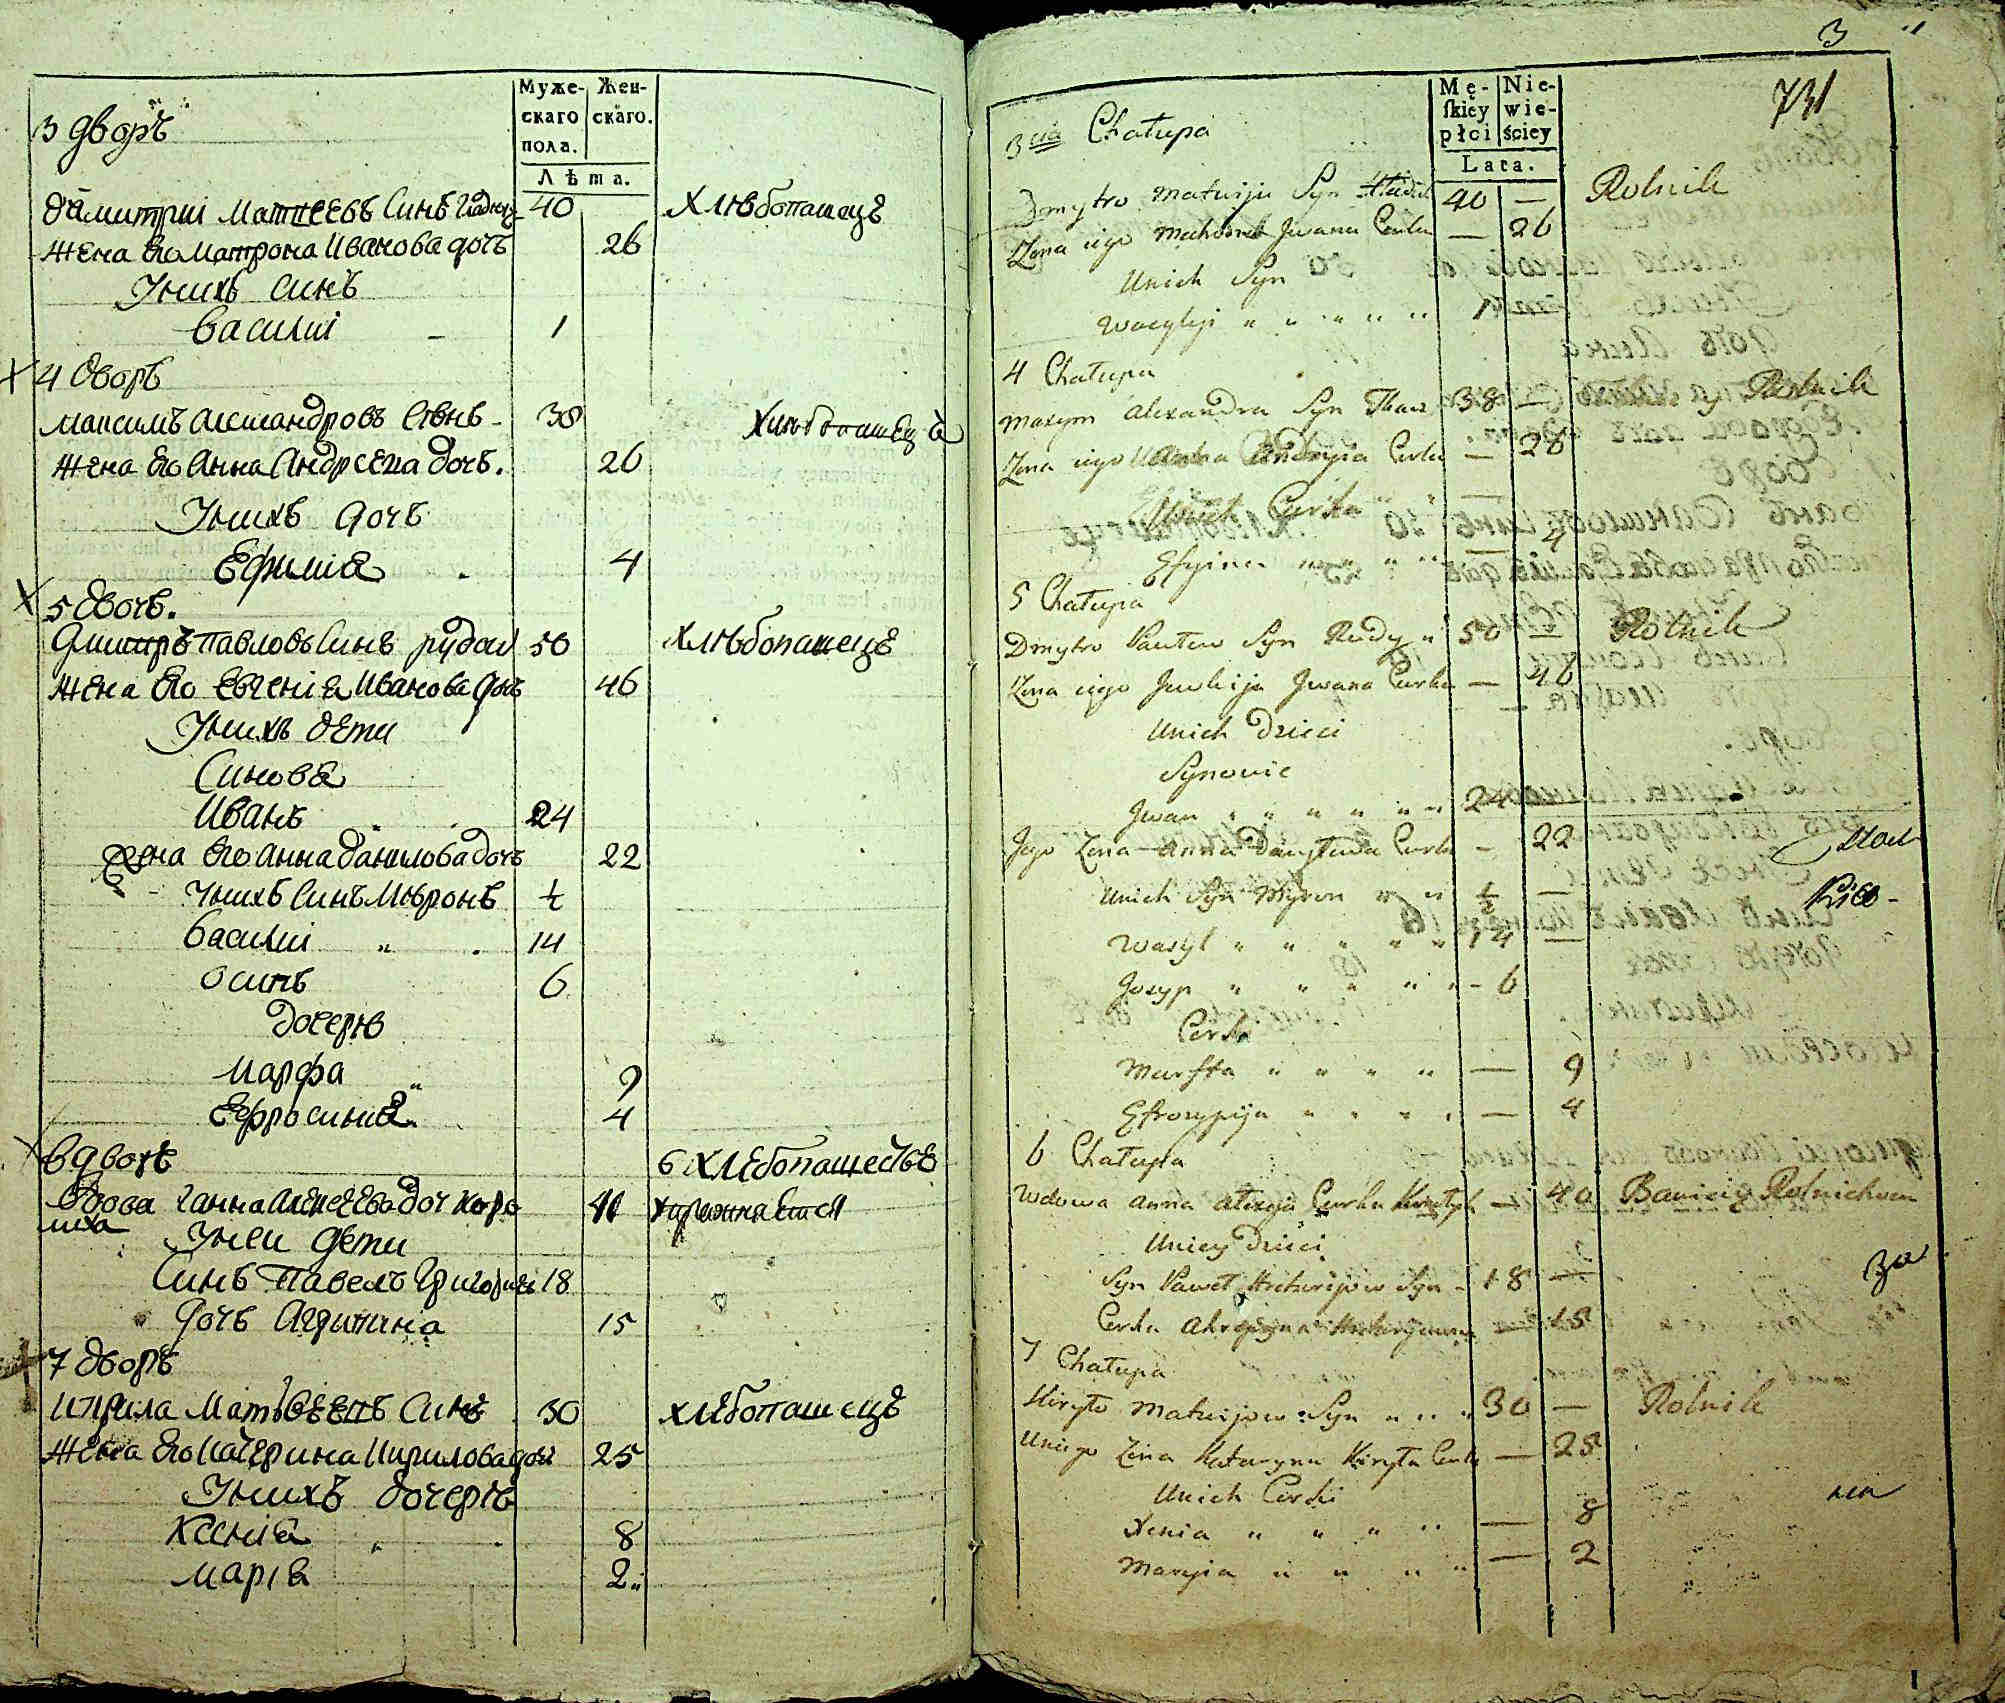 Муже-
скаго
пола.
Жен-
скаго.
Лѣта.
3 дворъ
Димитрій Матвеевъ Синъ 40 Хлѣбопашецъ
Жена Его Матрона Иванова дочь 26
Унихъ Синъ
Василій 1
4 дворъ
Максимъ Александровъ Синъ 38 Хлѣбопашецъ
Жена Его Анна Андреева дочь. 26
Унихъ дочь
Ефимія 4
5 дворъ.
Дмитръ Павловъ Синъ рудой 50 Хлѣбопашецъ
Жена Его Евгенія Иванова дочь 46
Унихъ дети
Синовя
Иванъ 24
Жена Его Анна Данилова дочь 22
Унихъ Синъ Миронъ ½
Василій 14
Осипъ 6
Дочерѣ
Марфа 9
Ефросинія 4
6 дворъ 6 хлѣбопашествѣ
Вдова Ганна Алексеева доч 40
Унеи дети
Синъ Павелъ Григориевъ 18
Дочь Агрипина 15
7 дворъ
Кирила Матвѣевъ Синъ 30 хлѣбопашецъ
Жена Его Катерина Кирилова дочь 25
Унихъ дочерѣ
Ксенія 8
Марія 2
3
731
Mę-
skiey
płci
Nie-
wie-
ściey
Lata.
3cia Chałupa
Dmytro Matwija Syn 40 — Rolnik
Żona iego Iwana Curka — 26
Unich Syn
Wasylij " " " " " 1
4 Chałupa
Maxym Alexandra Syn Tkacz 38 — Rolnik
Żona iego Anna Andryia Curka — 26
Unich Curka " " —
Efymia " " " " — 4
5 Chałupa
Dmytro Pawłow Syn Rudy " 50 — Rolnik
Żona iego Jewhija Iwana Curka — 46
Unich Dzieci
Synowie
Iwan " " " " " " 24
Jego Żona Anna Danyłowa Curka — 22
Unich Syn Myron " " ½ —
Wasyl " " " " " 14 —
Josyp " " " " " 6
Curki
Marfta " " " " — 9
Efrozynija " " " " — 4
6 Chałupa
Wdowa Anna Alexeja Curka — 40 Bawiący Rolnictwem
Uniey Dzieci
Syn Paweł Hrehorijow Syn 18 —
Curka Ahrypyna — 15
7 Chałupa
Kiryło Matwijow Syn " " " 30 — Rolnik
Uniego Żona Kataryna Kiryła Curka — 25
Unich Curki
Xenia " " " " — 8
Maryia " " " " — 2